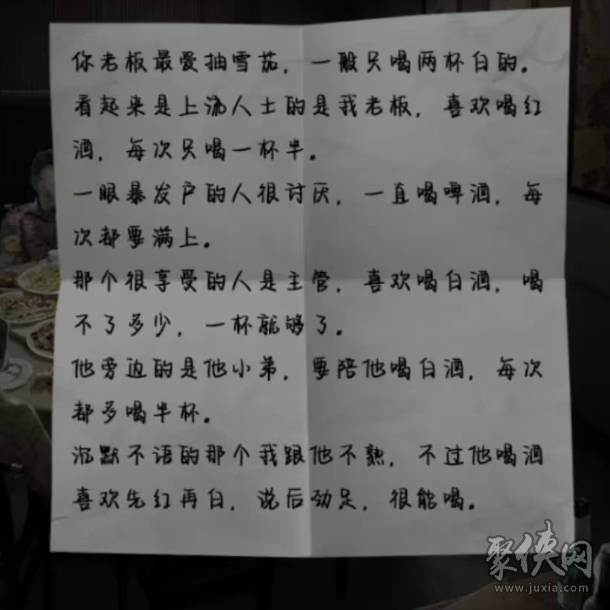 你老板最爱抽雪茄，一般只喝两杯白的。
看起来是上流人士的是我老板，喜欢喝红
酒，每次只喝一杯半。
一眼暴发户的人很讨厌，一直喝啤酒，每
次都要满上。
那个很享受的人是主管，喜欢喝白酒，喝
不了多少，一杯就够了。
他旁边的是他小弟，要陪他喝白酒，每次
都多喝半杯。
沉默不语的那个我跟他不熟，不过他喝酒
喜欢先红再白，说后劲足，很能喝。
聚侠网
www.juxia.com